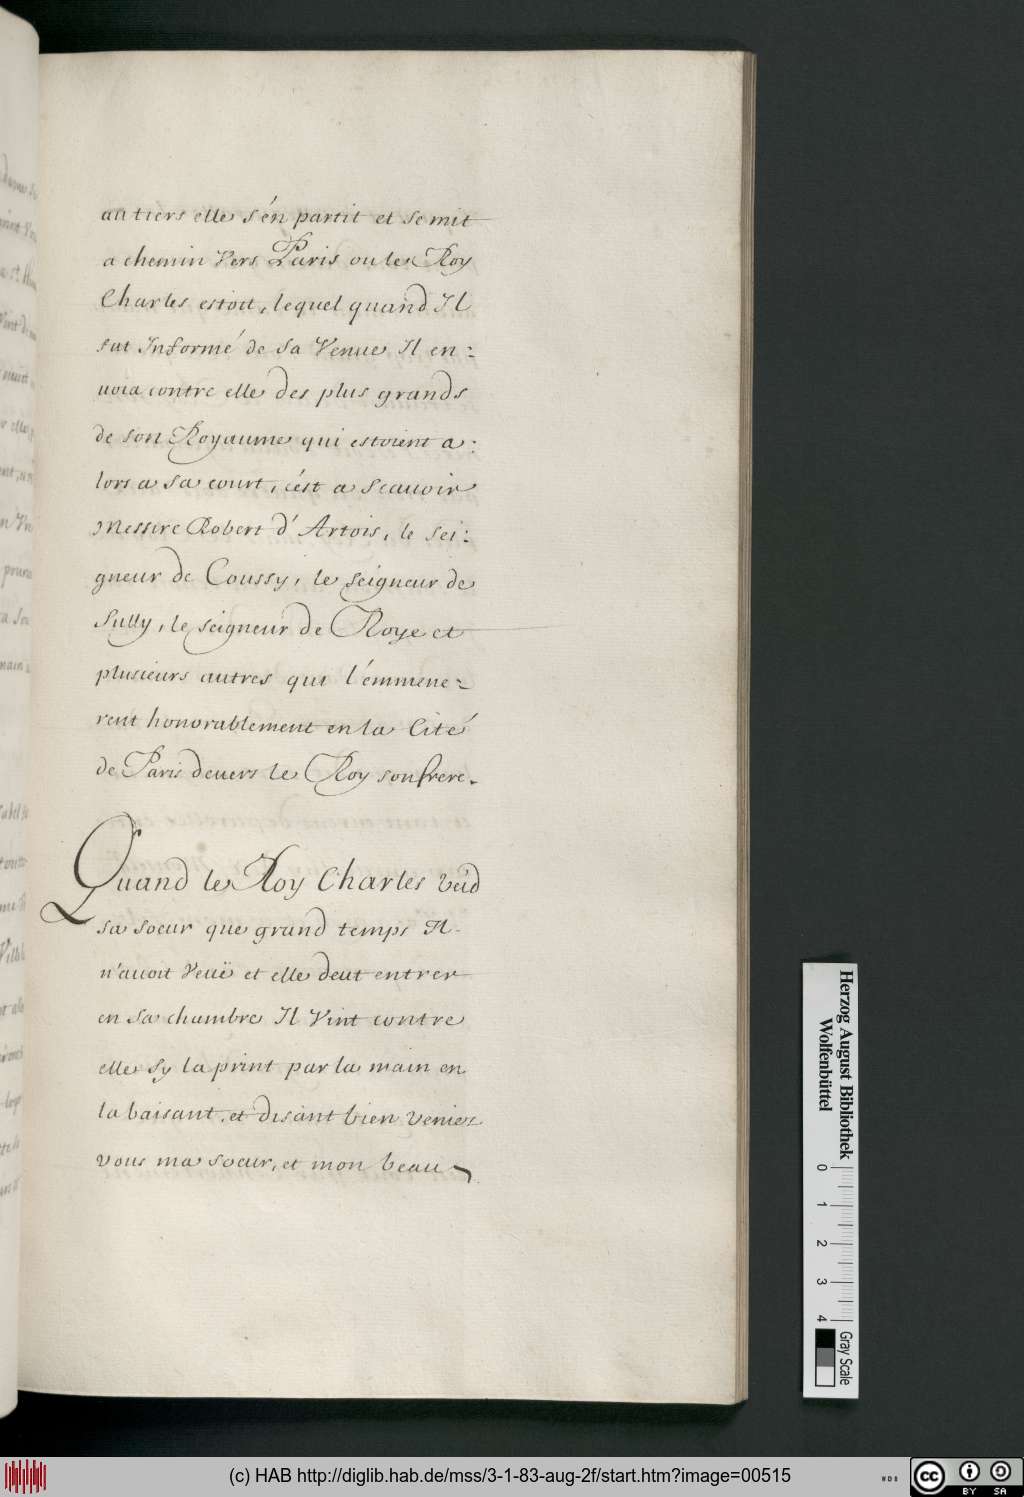 au tiers elle s'én partit et se mit
a chemin Vers Paris ou le Roy
Charles estoit, lequel quand Il
fut Informé de sa Venue Il en:
uoia contre elle des plus grands
de son Royaume qui estoient a:
lors a sa court, c'ést a scauoir
Messire Robert d'Artois, le sei:
gneur de Coussy, le seigneur de
Sully, le seigneur de Roye et
plusieurs autres qui l'émmene:
rent honorablement en la Cité
de Paris deuers le Roy son frere.
Quand le Roy Charles veid
sa soeur que grand temps Il
n'auoit Veuë et elle deut entrer
en sa chambre Il Vint contre
elle sy la print par la main en
la baisant, et disant bien veniez
vous ma soeur, et mon beau
Herzog August Bibliothek
Wolfenbüttel
0 1 2 3 4
Gray Scale
(c) HAB http://diglib.hab.de/mss/3-1-83-aug-2f/start.htm?image=00515
WDB
cc BY SA